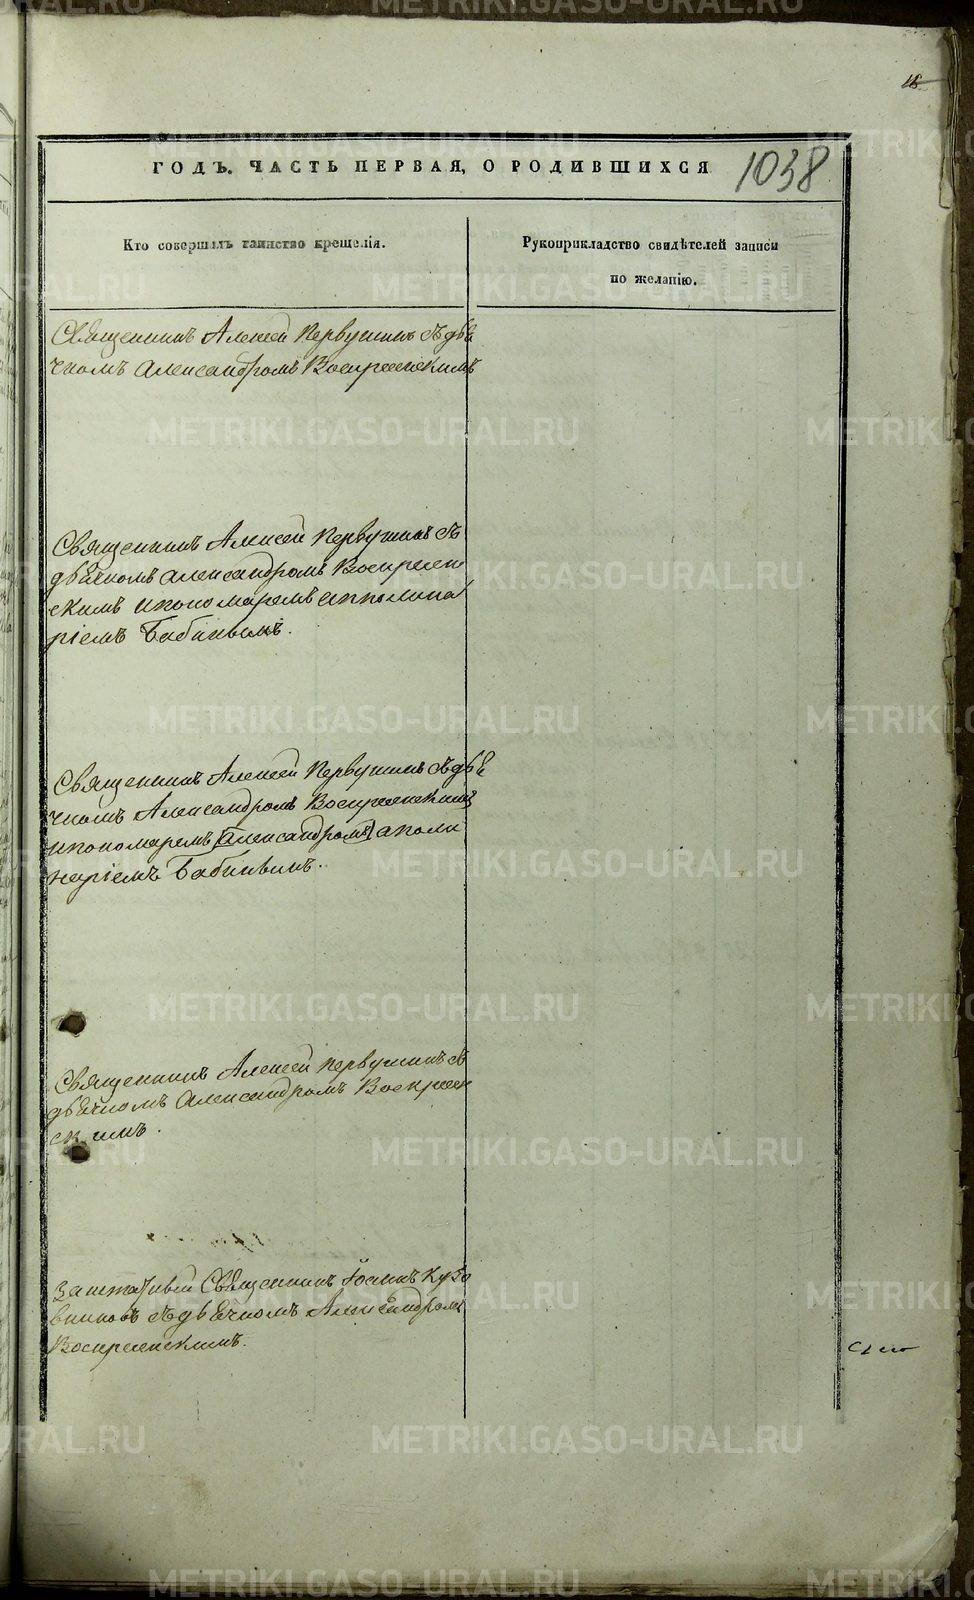 18
ГОДЪ. ЧАСТЬ ПЕРВАЯ, О РОДИВШИХСЯ
1038
Кто совершалъ таинство крещенія.
Рукоприкладство свидѣтелей записи
по желанію.
Священникъ Алексей Первушинъ съ дья
чкомъ Александромъ Воскресенскимъ
Священникъ Алексей Первушинъ съ
дьячкомъ Александромъ Воскресен
скимъ и пономаремъ Апполина
ріемъ Бабинымъ.
Священникъ Алексей Первушинъ съ дья
чкомъ Александромъ Воскресенскимъ
и пономаремъ (Александромъ) Аполи
наріемъ Бабинымъ.
Священникъ Алексей Первушинъ съ
дьячкомъ Александромъ Воскресен
скимъ.
Заштатный Священникъ Іоаннъ Кузо
вниковъ съ дьячкомъ Александромъ
Воскресенскимъ.
METRIKI.GASO-URAL.RU